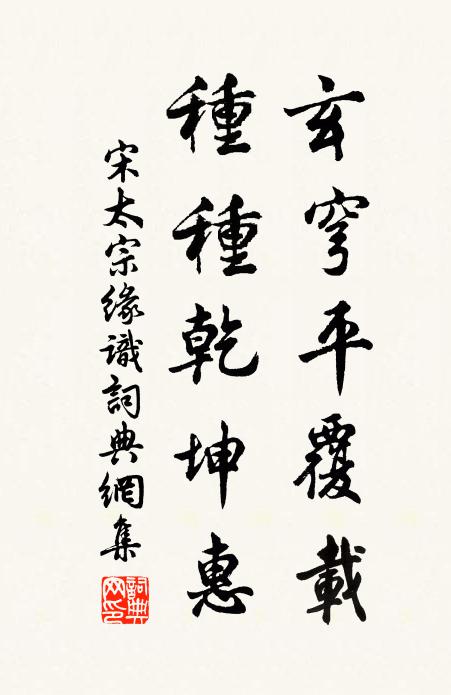 玄穹平覆載
種種乾坤惠
宋太宗緣識詞典網集
詞典網印